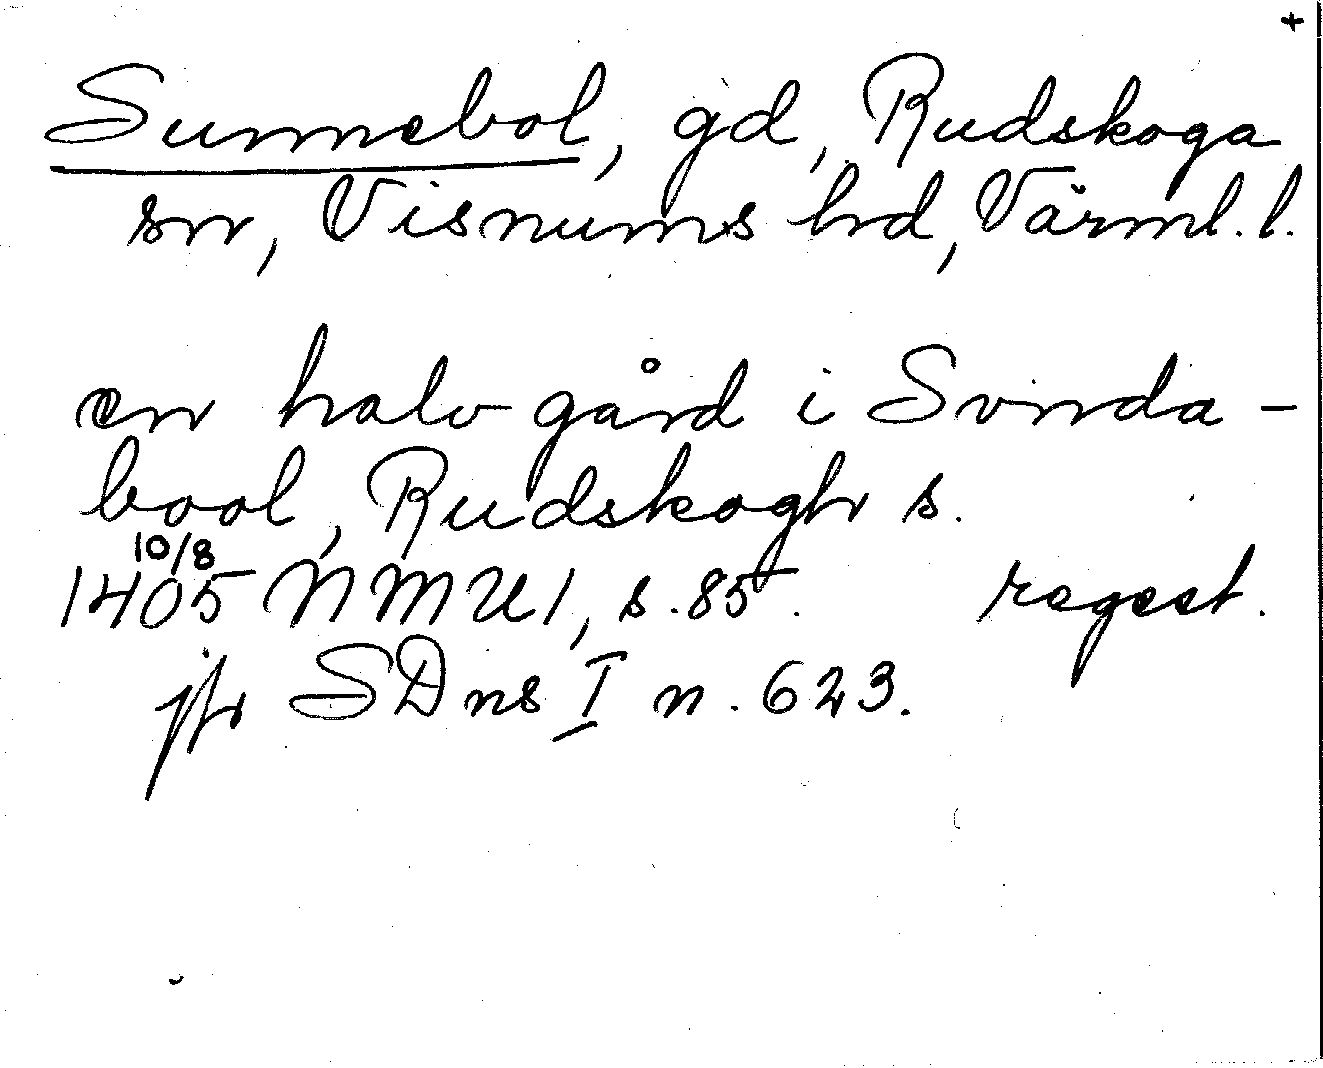 +
Sunnebol, gd, Rudskoga
sn, Visnums hd, Värml. l.
en halv gård i Svnda-
bool, Rudskogh s.
10/8
1405 NMU1, s. 85. regest.
jfr SDns I n. 623.